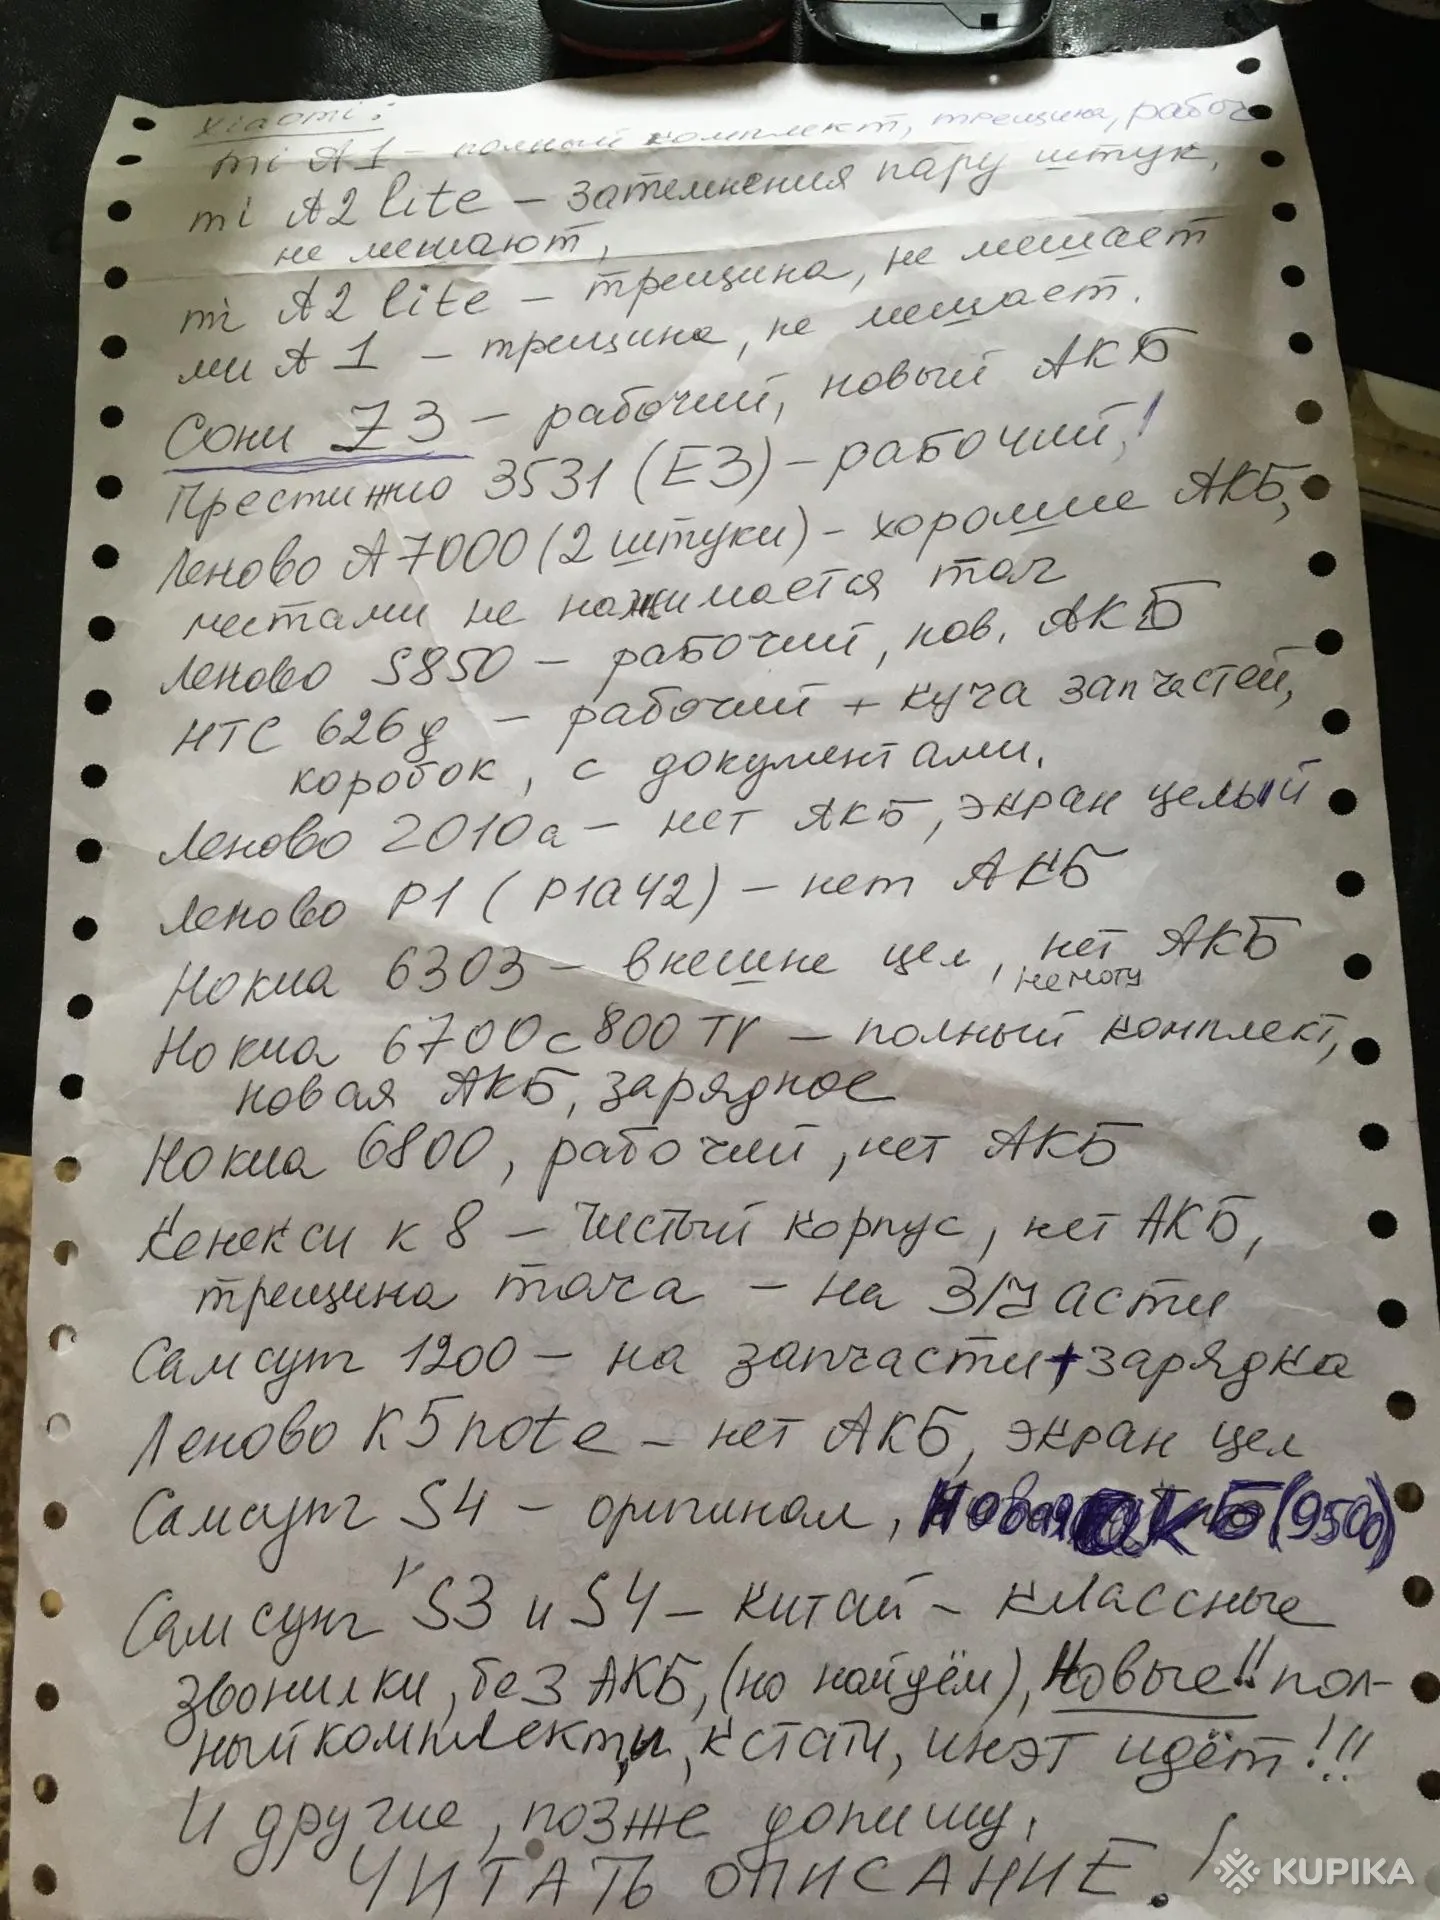 Xiaomi:
mi A1 - полный комплект, трещина, рабоч
mi A2 lite - затемнения пару штук,
не мешают,
mi A2 lite - трещина, не мешает
ми A1 - трещина, не мешает.
Сони Z3 - рабочий, новый АКБ
Престижио 3531 (E3) - рабочий!
Леново A7000 (2 штуки) - хорошие АКБ,
местами не нажимается тач
Леново S850 - рабочий, нов. АКБ
HTC 626g - рабочий + куча запчастей,
коробок, с документами.
Леново 2010a - нет АКБ, экран целый
Леново P1 (P1a42) - нет АКБ
Нокиа 6303 - внешне цел, нет АКБ
не могу
Нокиа 6700c 800 Тг - полный комплект,
новая АКБ, зарядное
Нокиа 6800, рабочий, нет АКБ
Кенекси к 8 - чистый корпус, нет АКБ,
трещина тача - на З/Части
Самсунг 1200 - на запчасти + зарядка
Леново K5 note - нет АКБ, экран цел
Самсунг S4 - оригинал, Новая АКБ (9500)
Самсунг S3 и S4 - Китай - классные
звонилки, без АКБ, (но найдём), Новые!! пол-
ный комплекты, кстати, инэт идёт!!!
И другие, позже допишу.
ЧИТАТЬ ОПИСАНИЕ!
KUPIKA